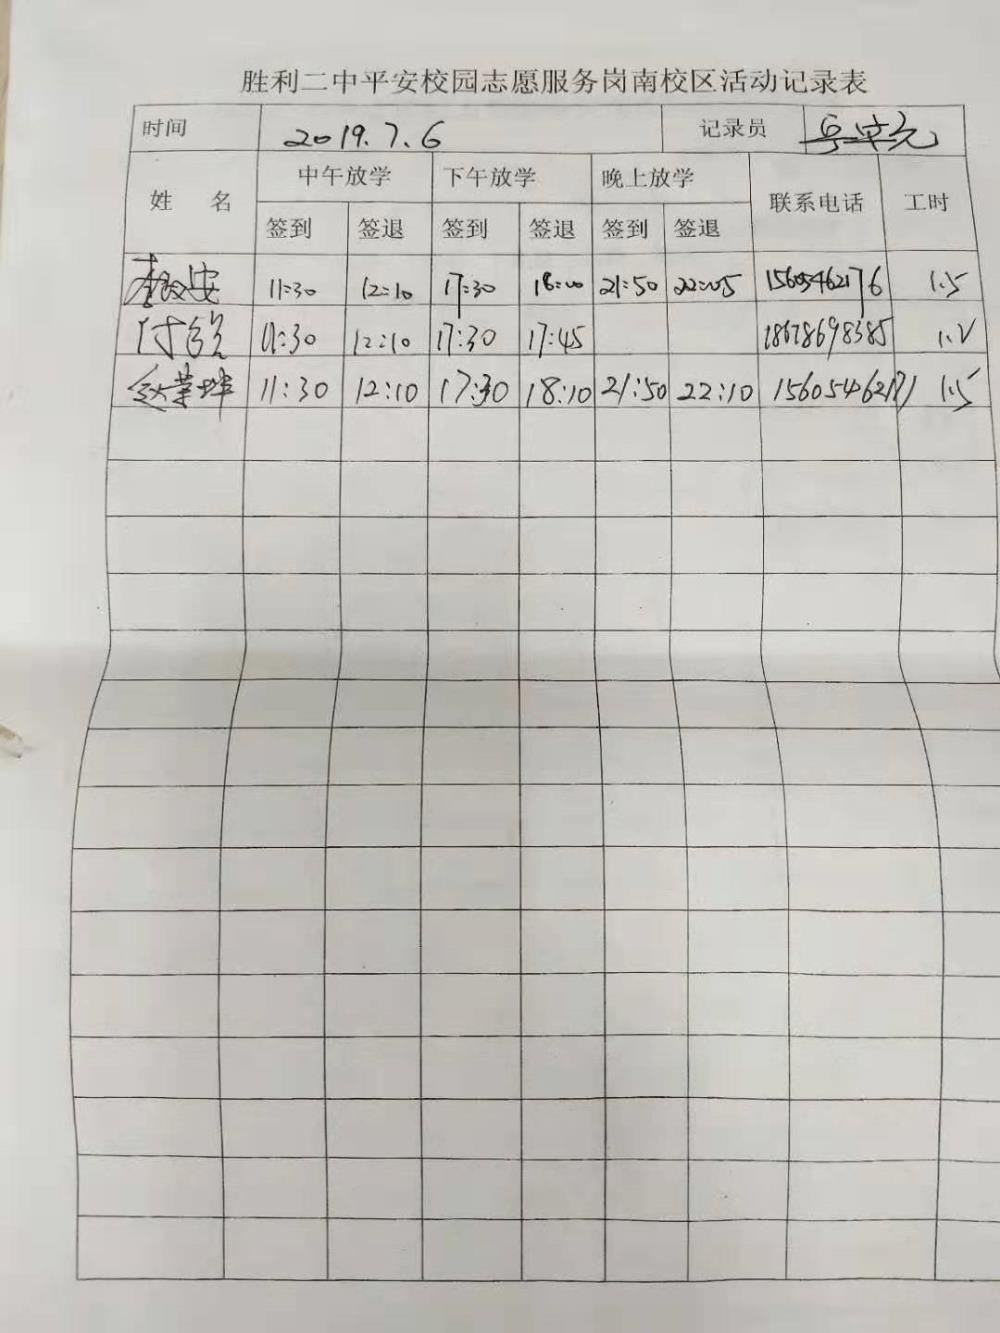 胜利二中平安校园志愿服务岗南校区活动记录表
时间 2019.7.6 记录员
姓 名 中午放学 下午放学 晚上放学 联系电话 工时
签到 签退 签到 签退 签到 签退
11:30 12:10 17:30 18:00 21:50 22:05 15605462176 1.5
付 11:30 12:10 17:30 17:45 18678698385 1.2
赵荣 11:30 12:10 17:30 18:10 21:50 22:10 15605462171 1.5